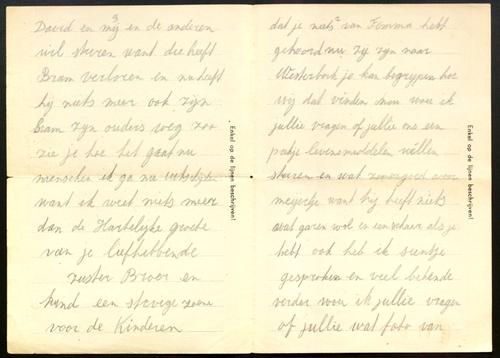 David en mij en de anderen
wil sturen want die heeft
Bram verloren en nu heeft
hij niets meer ook zijn
Bram zijn ouders weg zoo
zie je hoe het gaat nu
menschen ik ga nu
want ik weet niets meer
dan de Hartelijke groete
van je liefhebbende
zuster Broer en
kind een stevige zoene
voor de Kinderen
Enkel op de lijnen beschrijven!
dat je niets van Fomma hebt
gehoord nu zij zijn naar
Westerbork je kan begrijpen hoe
wij dat vinden nou wou ik
jullie vragen of jullie ons een
pakje levensmiddelen willen
sturen en wat voor
meisetje want hij heeft niets
wat garen wol en een schaar als je
hebt ook heb ik sientje
gesproken en veel bekende
verder wou ik jullie vragen
of jullie wat foto van
Enkel op de lijnen beschrijven!